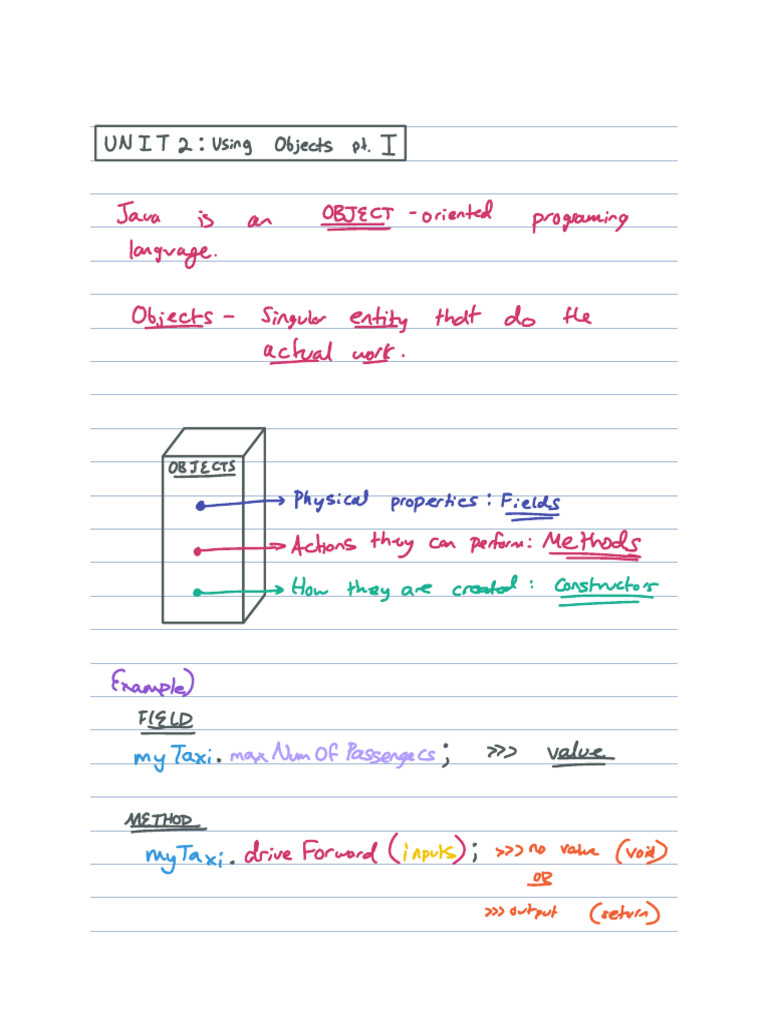 UNIT 2: Using Objects pt. I
Java is an OBJECT-oriented programing
language.
Objects - Singular entity that do the
actual work.
OBJECTS
Physical properties: Fields
Actions they can perform: Methods
How they are created: Constructors
Example)
FIELD
myTaxi.maxNumOfPassengers; >>> value
METHOD
myTaxi.driveForward(inputs); >>> no value (void)
OR
>>> output (return)